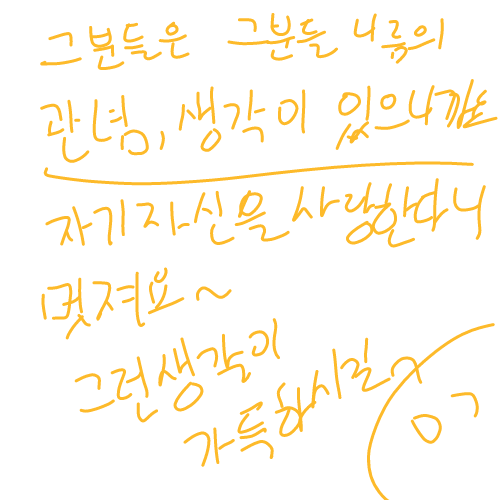 그분들은 그분들 나름의
관념, 생각이 있으니까요
자기자신을 사랑한다니
멋져요~
그런생각이
가득하시길